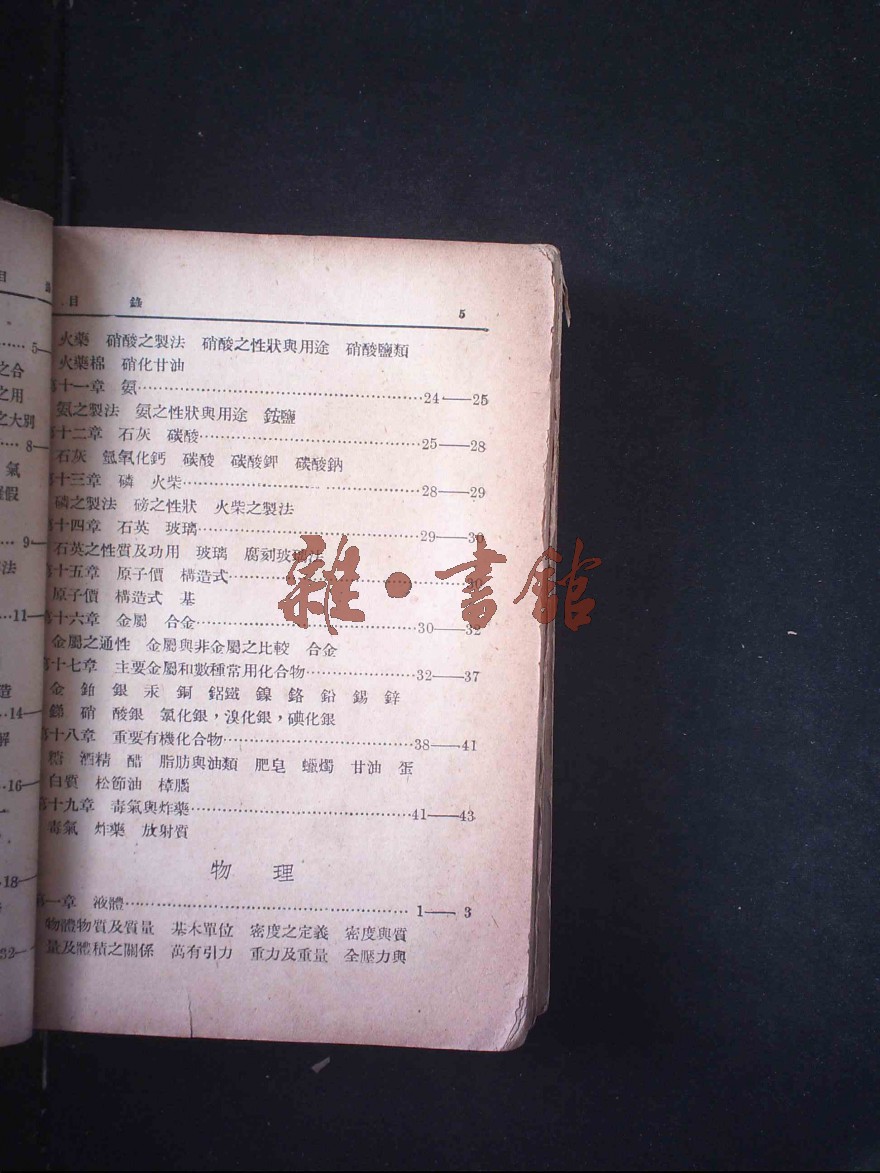 目 錄 5
火藥 硝酸之製法 硝酸之性狀與用途 硝酸鹽類
火藥棉 硝化甘油
第十一章 氨……24——25
氨之製法 氨之性狀與用途 銨鹽
第十二章 石灰 碳酸……25——28
石灰 氫氧化鈣 碳酸 碳酸鉀 碳酸鈉
第十三章 磷 火柴……28——29
磷之製法 磅之性狀 火柴之製法
第十四章 石英 玻璃……29——30
石英之性質及功用 玻璃 腐刻玻璃法
第十五章 原子價 構造式……30
原子價 構造式 基
第十六章 金屬 合金……30——32
金屬之通性 金屬與非金屬之比較 合金
第十七章 主要金屬和數種常用化合物……32——37
金 鉑 銀 汞 銅 鋁鐵 鎳 鉻 鉛 錫 鋅
銻 硝 酸銀 氯化銀，溴化銀，碘化銀
第十八章 重要有機化合物……38——41
糖 酒精 醋 脂肪與油類 肥皂 蠟燭 甘油 蛋
白質 松節油 樟腦
第十九章 毒氣與炸藥……41——43
毒氣 炸藥 放射質
物 理
第一章 液體……1——3
物體物質及質量 基木單位 密度之定義 密度與質
量及體積之關係 萬有引力 重力及重量 全壓力與
雜·書館
目
5—
之合
之用
之大別
8—
氣
9—
法
11—
造
14—
解
16—
18—
32—